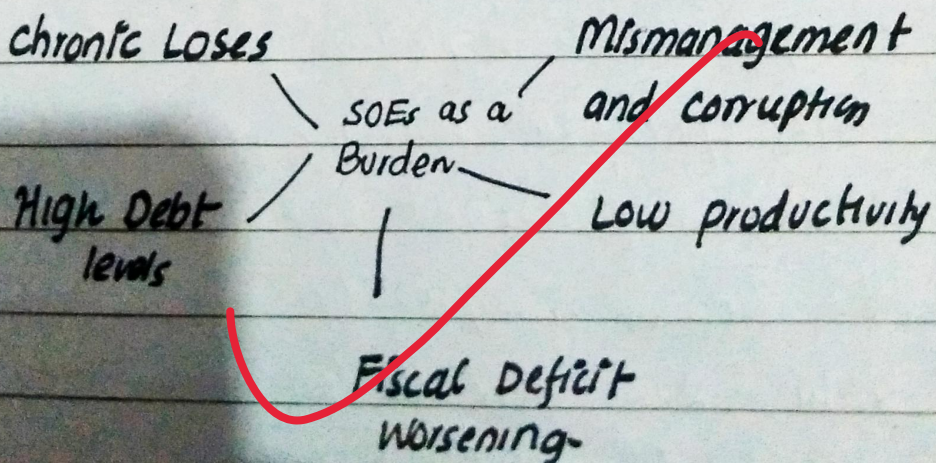 Chronic Loses
Mismanagement
and corruption
SOEs as a
Burden
High Debt
levels
Low productivity
Fiscal Deficit
worsening